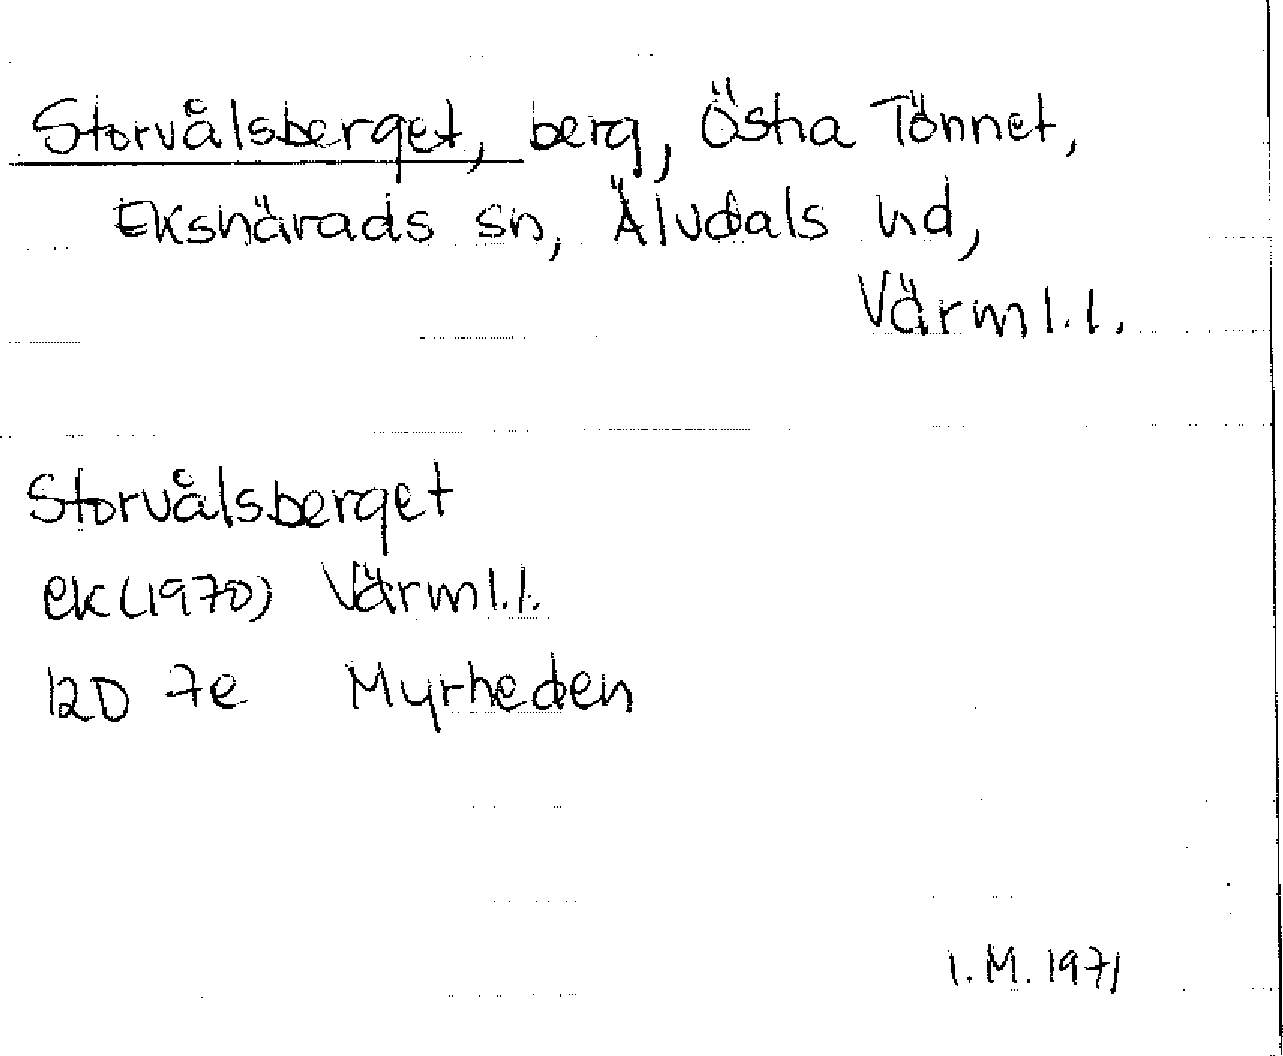 Storvålsberget, berg, Östra Tönnet,
Ekshärads sn, Älvdals hd,
Värml.l.
Storvålsberget
ek(1970) Värml.l.
12D 7e Myrheden
I.M. 1971